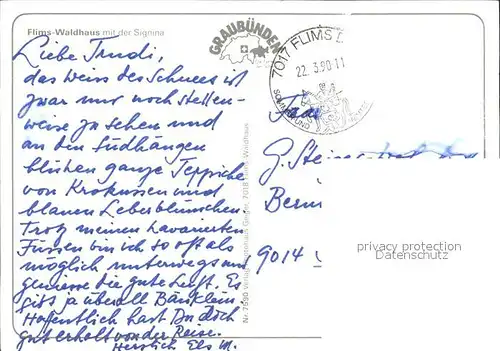 Flims-Waldhaus mit der Signina
Liebe Trudi,
das weiss des Schnees ist
zwar nur noch stellen-
weise zu sehen und
an den Südhängen
blühen ganze Teppiche
von Krokussen und
blauen Leberblümchen.
Trotz meinen lavarierten
Füssen bin ich so oft als
möglich unterwegs und
geniesse die gute Luft. Es
gibt ja überall Bänklein.
Hoffentlich hast Du Dich
gut erholt von der Reise.
Herzlich Els M.
GRAUBÜNDEN
7017 FLIMS
22.3.90-11
SOMMER UND
Nr. 7590 Verlag Geiger, 7018 Flims-Waldhaus
Frau
G.
Bern
9014
privacy protection
Datenschutz